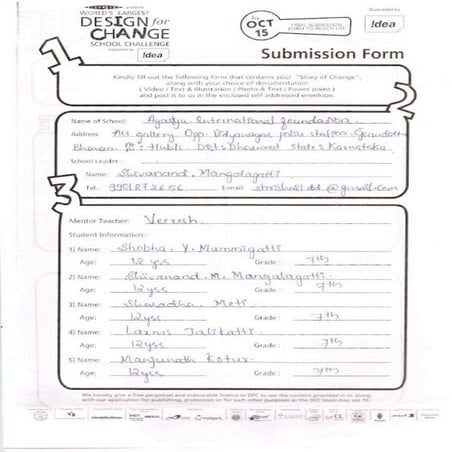 presents
WORLD'S LARGEST
DESIGN for
CHANGE
SCHOOL CHALLENGE
Supported by !dea
by
OCT
15
FINAL SUBMISSION
FORM TO REACH US
Supported by
!dea
Submission Form
1
Kindly fill out the following form that contains your "Story of Change",
along with your choice of documentation
( Video / Text & Illustration / Photo & Text / Power point )
and post it to us in the enclosed self addressed envelope.
2
Name of School: Ajatya International foundation.
Address: Art gallery. Opp. Vidyanagar police station
Bhavan Hubli Dharwad State: Karnataka
School Leader :
Name: Shivanand. Mangalagatti
Tel.: E-mail: @gmail.com
3
Mentor Teacher: Veeresh.
Student Information:-
1) Name: Shobha. Y. Mummigatti
Age: 12 yrs Grade : 7th
2) Name: Shivanand. M. Mangalagatti.
Age: 12 yrs Grade : 7th
3) Name: Sharadha Moti
Age: 12 yrs Grade : 7th
4) Name: Laxmi Talikatti
Age: 12 yrs Grade : 7th
5) Name: Manjunath Kotur.
Age: 12 yrs Grade : 7th
We hereby give a free perpetual and irrevocable licence to DFC to use the content provided in or along
with our application for publishing, promotion or for such other purposes as the DFC team may see fit.